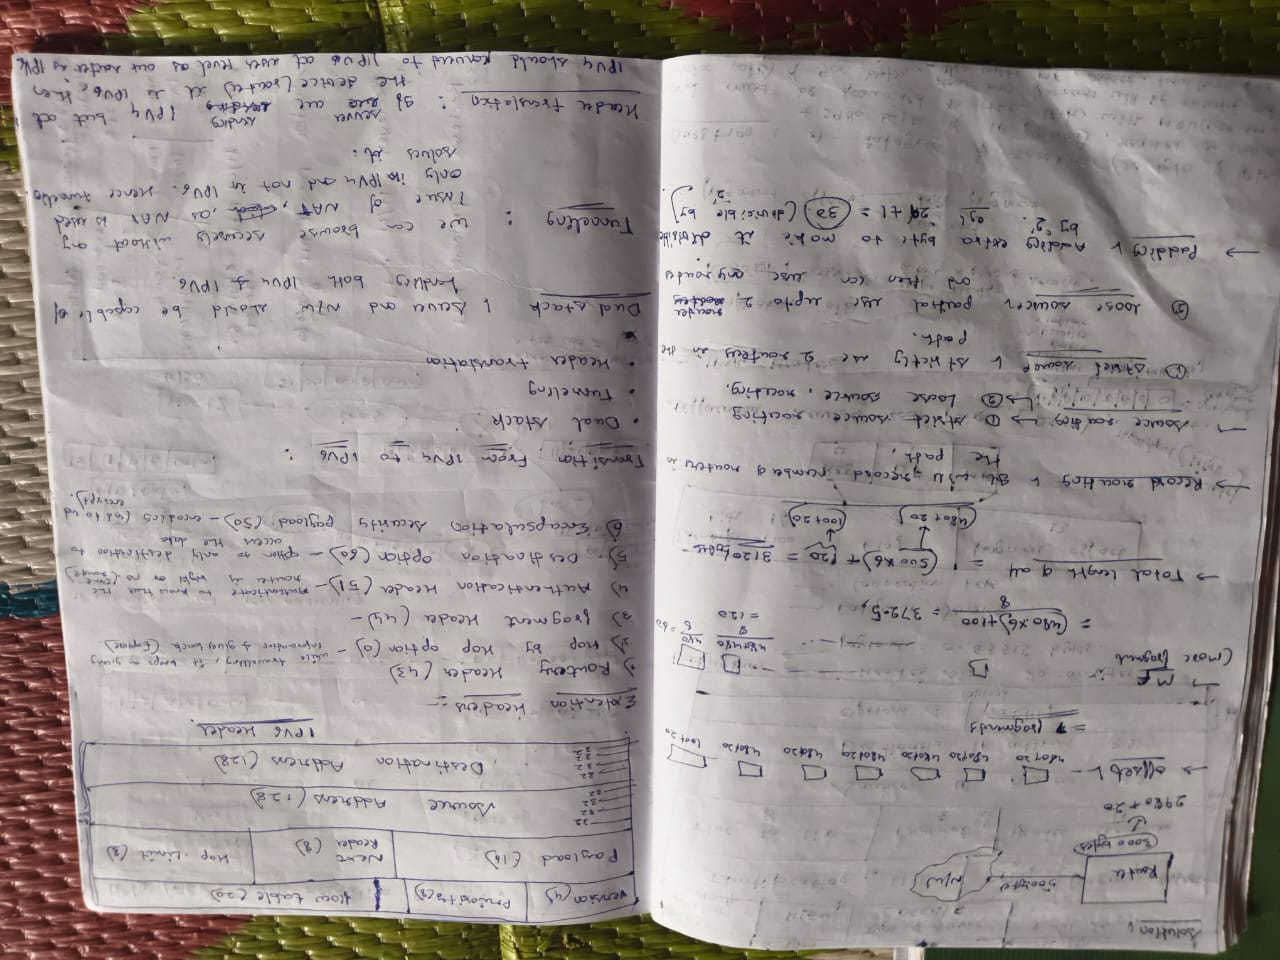 Solution
Router
500 bytes
N/W
3000 bytes
2980 + 20
→ offset :-
480+20 480+20 480+20 480+20 480+20 480+20 100+20
= 7 fragments
→ MF :-
(More fragment
480+480
8
= 120
480
8 = 60
= (480 x 6) + 100
8 = 372.5,
→ Total length of all = (500 x 6) + 120 = 3120 bytes
(480 + 20) (100 + 20)
→ Record routing : It will record number of routers in
the path.
→ Source routing → ① strict source routing
→ ② Loose source routing.
① strict source : strictly use 2 routers in the
path.
② loose source : partial use upto 2 router
and then can use any routes
→ Padding : Adding extra byte to make it divisible
by '2'. eg: 29 + 1 = 30 (divisible by
'2')
Version (4) Priority (8) flow table (20)
Payload (16) Next Hop Limit (8)
Reader (8)
32
32
32
32
Source Address (128)
32
32
32
32
Destination Address (128)
IPV6 Header
Extention Headers :-
1) Routery Header (43)
2) Hop by Hop option (0) - while travelling, it keeps on giving
& gives back
3) fragment Header (44) -
4) Authentication Header (51) - Authenticate to know that the
router is right or no (same route)
5) Destination option (60) - option to only destination to
access the data
6) Encapsulation security payload (50) - encoding (end to end
encrypt).
Transition From IPV4 to IPV6 :
• Dual stack
• Tunneling
• Header translation
Dual stack : Server and N/W should be capable of
handling both IPV4 & IPV6.
Tunneling : we can browse securely without any
issue of NAT, as NAT is used
only in IPV4 and not in IPV6. Hence tunneling
solves it.
Header translation : If server are sending IPV4 but at
the device (router) it is IPV6, then
IPV4 should convert to IPV6 at user level as our router is IPV6